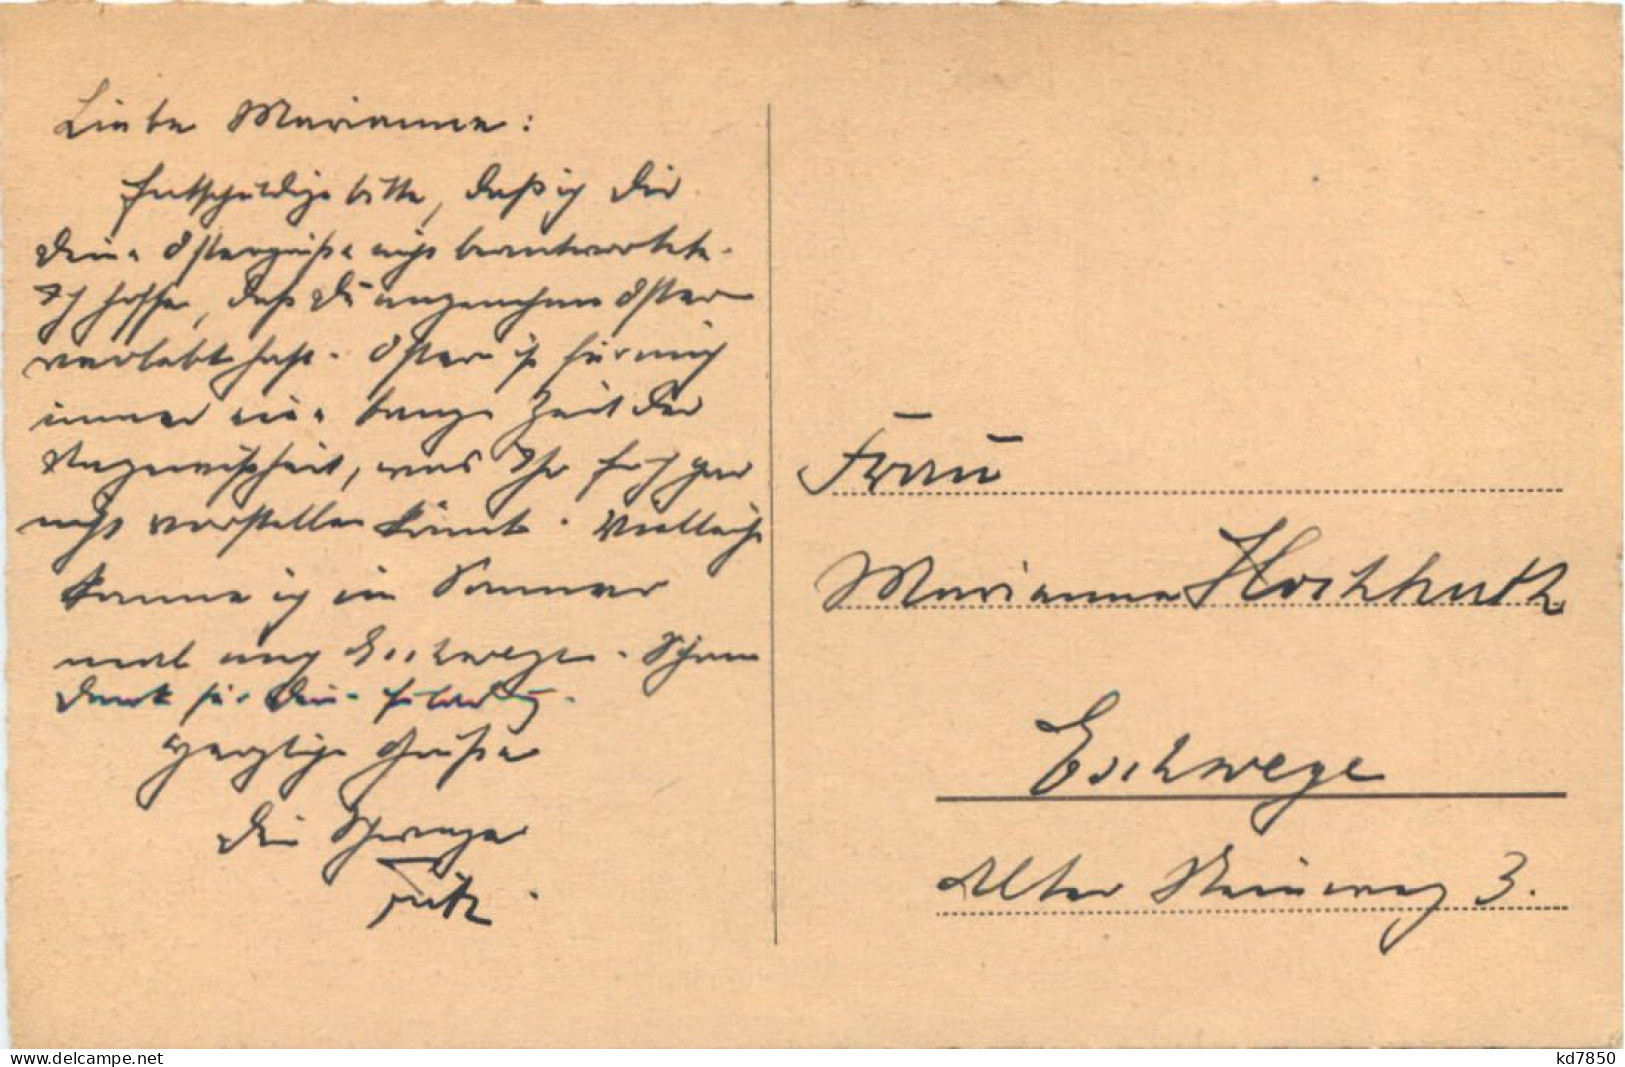 Liebe Marianne:
Entschuldige bitte, daß ich Dir
Deine Ostergrüße nicht beantwortete.
Ich hoffe, daß Du angenehme Ostern
verlebt hast. Ostern ist für mich
immer eine lange Zeit der
Ungewißheit, was Ihr Euch gar
nicht vorstellen könnt. Vielleicht
komme ich im Sommer
mal nach Eschwege. Schönen
Dank für Deine Einladung.
Herzliche Grüße
Dein Schwager
Fritz.
Frau
Marianne Hochhuth
Eschwege
Alter Steinweg 3.
www.delcampe.net
kd7850